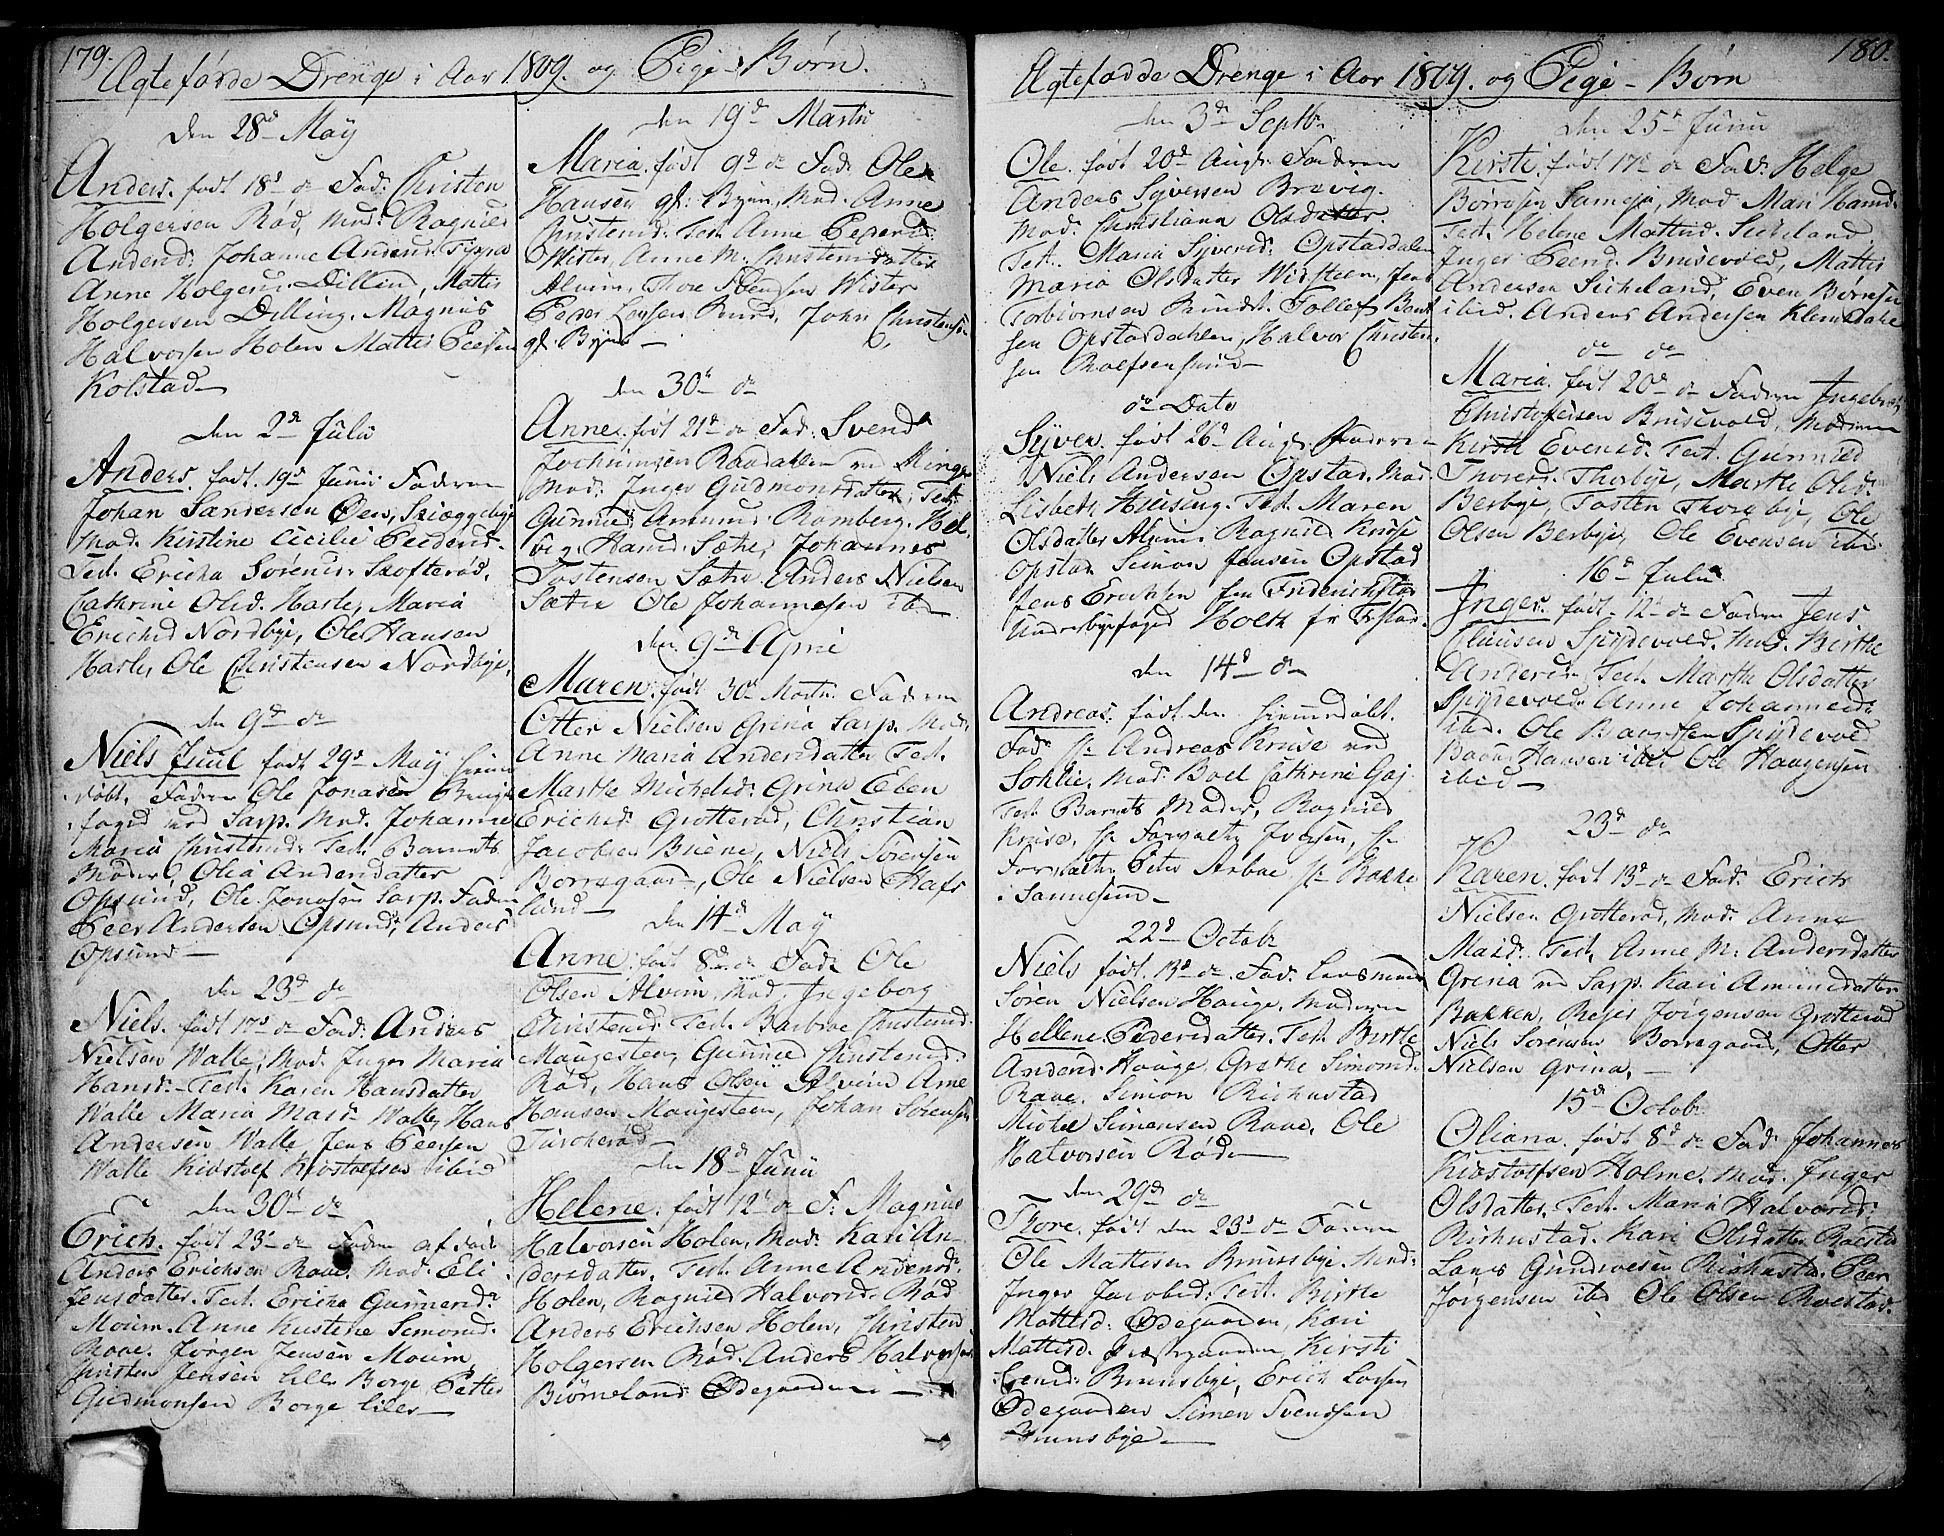 179.
Ægtefødde Drenge i Aar 1809. og Pige-Børn.
den 28d May
Anders. født 18d do Fad: Christen
Holgersen Rød, Mod: Ragnild
Andersd: Johanne Andersd:
Anne Holgersd: Dilling, Mattis
Holgersen Dilling. Magnus
Halvorsen Holen Mattis Peersen
Kolstad
den 2d Julii
Anders, født 19d Junii Faderen
Johan Sandersen Øen, Skiæggebye
Mod. Kirstine Cicilie Peedersd.
Test. Ericha Sørensd: Skofterød,
Cathrine Olsd. Hasle, Maria
Erichsd Nordbye, Ole Hansen
Hasle, Ole Christensen Nordbye,
den 9d do
Niels Juul født 29d May hiemme
døbt, Faderen Ole Jonasen
foged ved Sarp. Mod. Johanne
Maria Christensd: Test. Barnets
Moder, Olia Andersdatter
Opsund, Ole Jonasen Sarp. Faderen
Peer Andersen Opsund, Anders
Opsund
den 23d do
Niels. født 17d do Fad: Anders
Nielsen Walle, Mod. Inger Maria
Hansd: Test. Karen Hansdatter
Walle Maria Madsd Walle, Hans
Andersen Walle Jens Peersen
Walle Kirstoef Kirstoefsen ibid
den 30d do
Erich. født 23d do Faderen af
Anders Erichsen Raae. Mod. Eli
Jensdatter. Test. Ericha Gunnersd:
Moum. Anne Kirstine Simonsd:
Raae. Jørgen Jensen Moum,
Christen Jensen Lille Borge, Petter
Gudmonsen Borge lille
den 19d Martii
Maria. født 9d do Fad: Ole
Hansen gl: Byen, Mod. Anne
Christensd: Test. Anne Pedersd:
Wister, Anne M: Christensdatter
Alvim, Thore Svensen Wister
Peder Larsen Ruud, John Christensen
gl. Byen
den 30d do
Anne. født 21d do Fad: Svend
Jochumsen Raadahlen ved Minge
Mod: Inger Gudmonsdatter, Test.
Gunnild Amunds: Romberg. Hel-
vig Hansd. Sætre, Johannes
Tostensen Sætre Anders Nielsen
Sætre Ole Johannesen ibid
den 9d April
Maren. født 30d Martii Faderen
Otter Nielsen Grina Sarp. Mod:
Anne Maria Andersdatter Test.
Marthe Michelsd: Grina Eben
Erichsd: Grotterød, Christian
Jacobsen Buene, Niels Sørensen
Borregaard, Ole Nielsen Hafs
lund
den 14d May
Anne. født 8d do Fad: Ole
Olsen Alvim, Mod. Ingeborg
Christensd: Test. Barbroe Christensd:
Maugesteen, Gunnild Christensd:
Rød, Hans Olsen Alvim Arne
Hansen Maugesteen, Johan Sørensen
Torcherød
den 18d Junii
Helene. født 12d do F: Magnus
Halvorsen Holen, Mod: Kari An-
dersdatter. Test. Anne Andersd:
Holen, Ragnild Halvorsd: Rød
Anders Erichsen Holen, Christen
Holgersen Rød. Anders Halvorsen
Biørneland Ødegaarden
180.
Ægtefødde Drenge i Aar 1809. og Pige-Børn
den 3d Septbr.
Ole. født 20d Augs: Faderen
Anders Syversen Brevig.
Mod: Christiana Olsdatter.
Test. Maria Syversd: Opstaddalen
Maria Olsdatter Widsteen, Jens
Torbiørnsen Ruud. Tollef
sen Opstaddahlen, Halvor Christen-
sen Roelfsensund
do Dato
Syver. født 26d Augs: Faderen
Niels Andersen Opstad. Mod:
Lisbeth Huusing. Test. Maren
Olsdatter Alvim Ragnild Kruse
Opstad Simon Jensen Opstad
Jens Erichsen fra Friderichstad
Underbyefoged Holth fr Frstad.
den 14d do
Andreas. født den hiemmedøbt.
Fad: Hr Andreas Kruse ved
Sohlie. Mod: Boel Cathrine Gaj
Test. Barnets Moder, Ragnild
Kruse, Hr Forvalter Iversen, Hr
Forvalter Peter Arboe Hr Bakke
i Sannesund
22d Octobr
Niels født 13d do Fad: Lensmand
Søren Nielsen Hauge, Moderen
Hellene Pedersdatter. Test. Birthe
Andersd: Hauge, Grethe Simonsd:
Raae, Simon Rishustad
Michel Simensen Raae, Ole
Halvorsen Røde
den 29d do
Thore. født den 23d do Faderen
Ole Mattisen Brunsbye, Mod:
Inger Jacobsd: Test. Birthe
Mattisd: Ødegaarden, Kari
Mattisd. Prestegaarden, Kirsti
Svensd: Brunsbye, Erich Larsen
Ødegaarden Simen Svendsen
Brunsbye
den 25d Junii
Kirsti. født 17d do Fad: Helge
Børresen Sameja, Mod Mari Hansd:
Test. Helene Mattisd. Sicheland,
Inger Peersd: Brusevold, Mattis
Andersen Sicheland, Even Børresen
ibid. Anders Andersen Klemsdahl
do do
Maria. født 20d do Faderen Ingebret
Christofersen Brusevold, Moderen
Kirsti Evensd. Test. Gunnild
Thoresd: Thorbye, Marthe Olsd:
Berbye, Tosten Thorebye, Ole
Olsen Berbye, Ole Evensen ibid.
16d Julii
Inger. født 12d do Faderen Jens
Clausen Spydevold, Mod. Birthe
Andersd: Test. Marthe Olsdatter
Spydevold. Anne Johannesd:
ibid. Ole Baardsen Spydevold
Baard Hansen ibid Ole Haagensen
ibid
23d do
Karen. født 13d do Fad: Erich
Nielsen Grotterød, Mod: Anne
Madsd: Test. Anne M: Andersdatter
Grina ved Sarp. Kari Amundsdatter
Bakken, Rejer Jørgensen Grotterød
Niels Sørensen Borregaard, Otter
Nielsen Grina,
15d Octobr
Oliana. født 8d do Fad: Johannes
Kirstoffsen Holme. Mod. Inger
Olsdatter. Test. Maria Halvorsd:
Rishustad. Kari Olsdatter Roestad
Lars Gundersen Rishustad. Peer
Jørgensen ibid Ole Olsen Roestad.